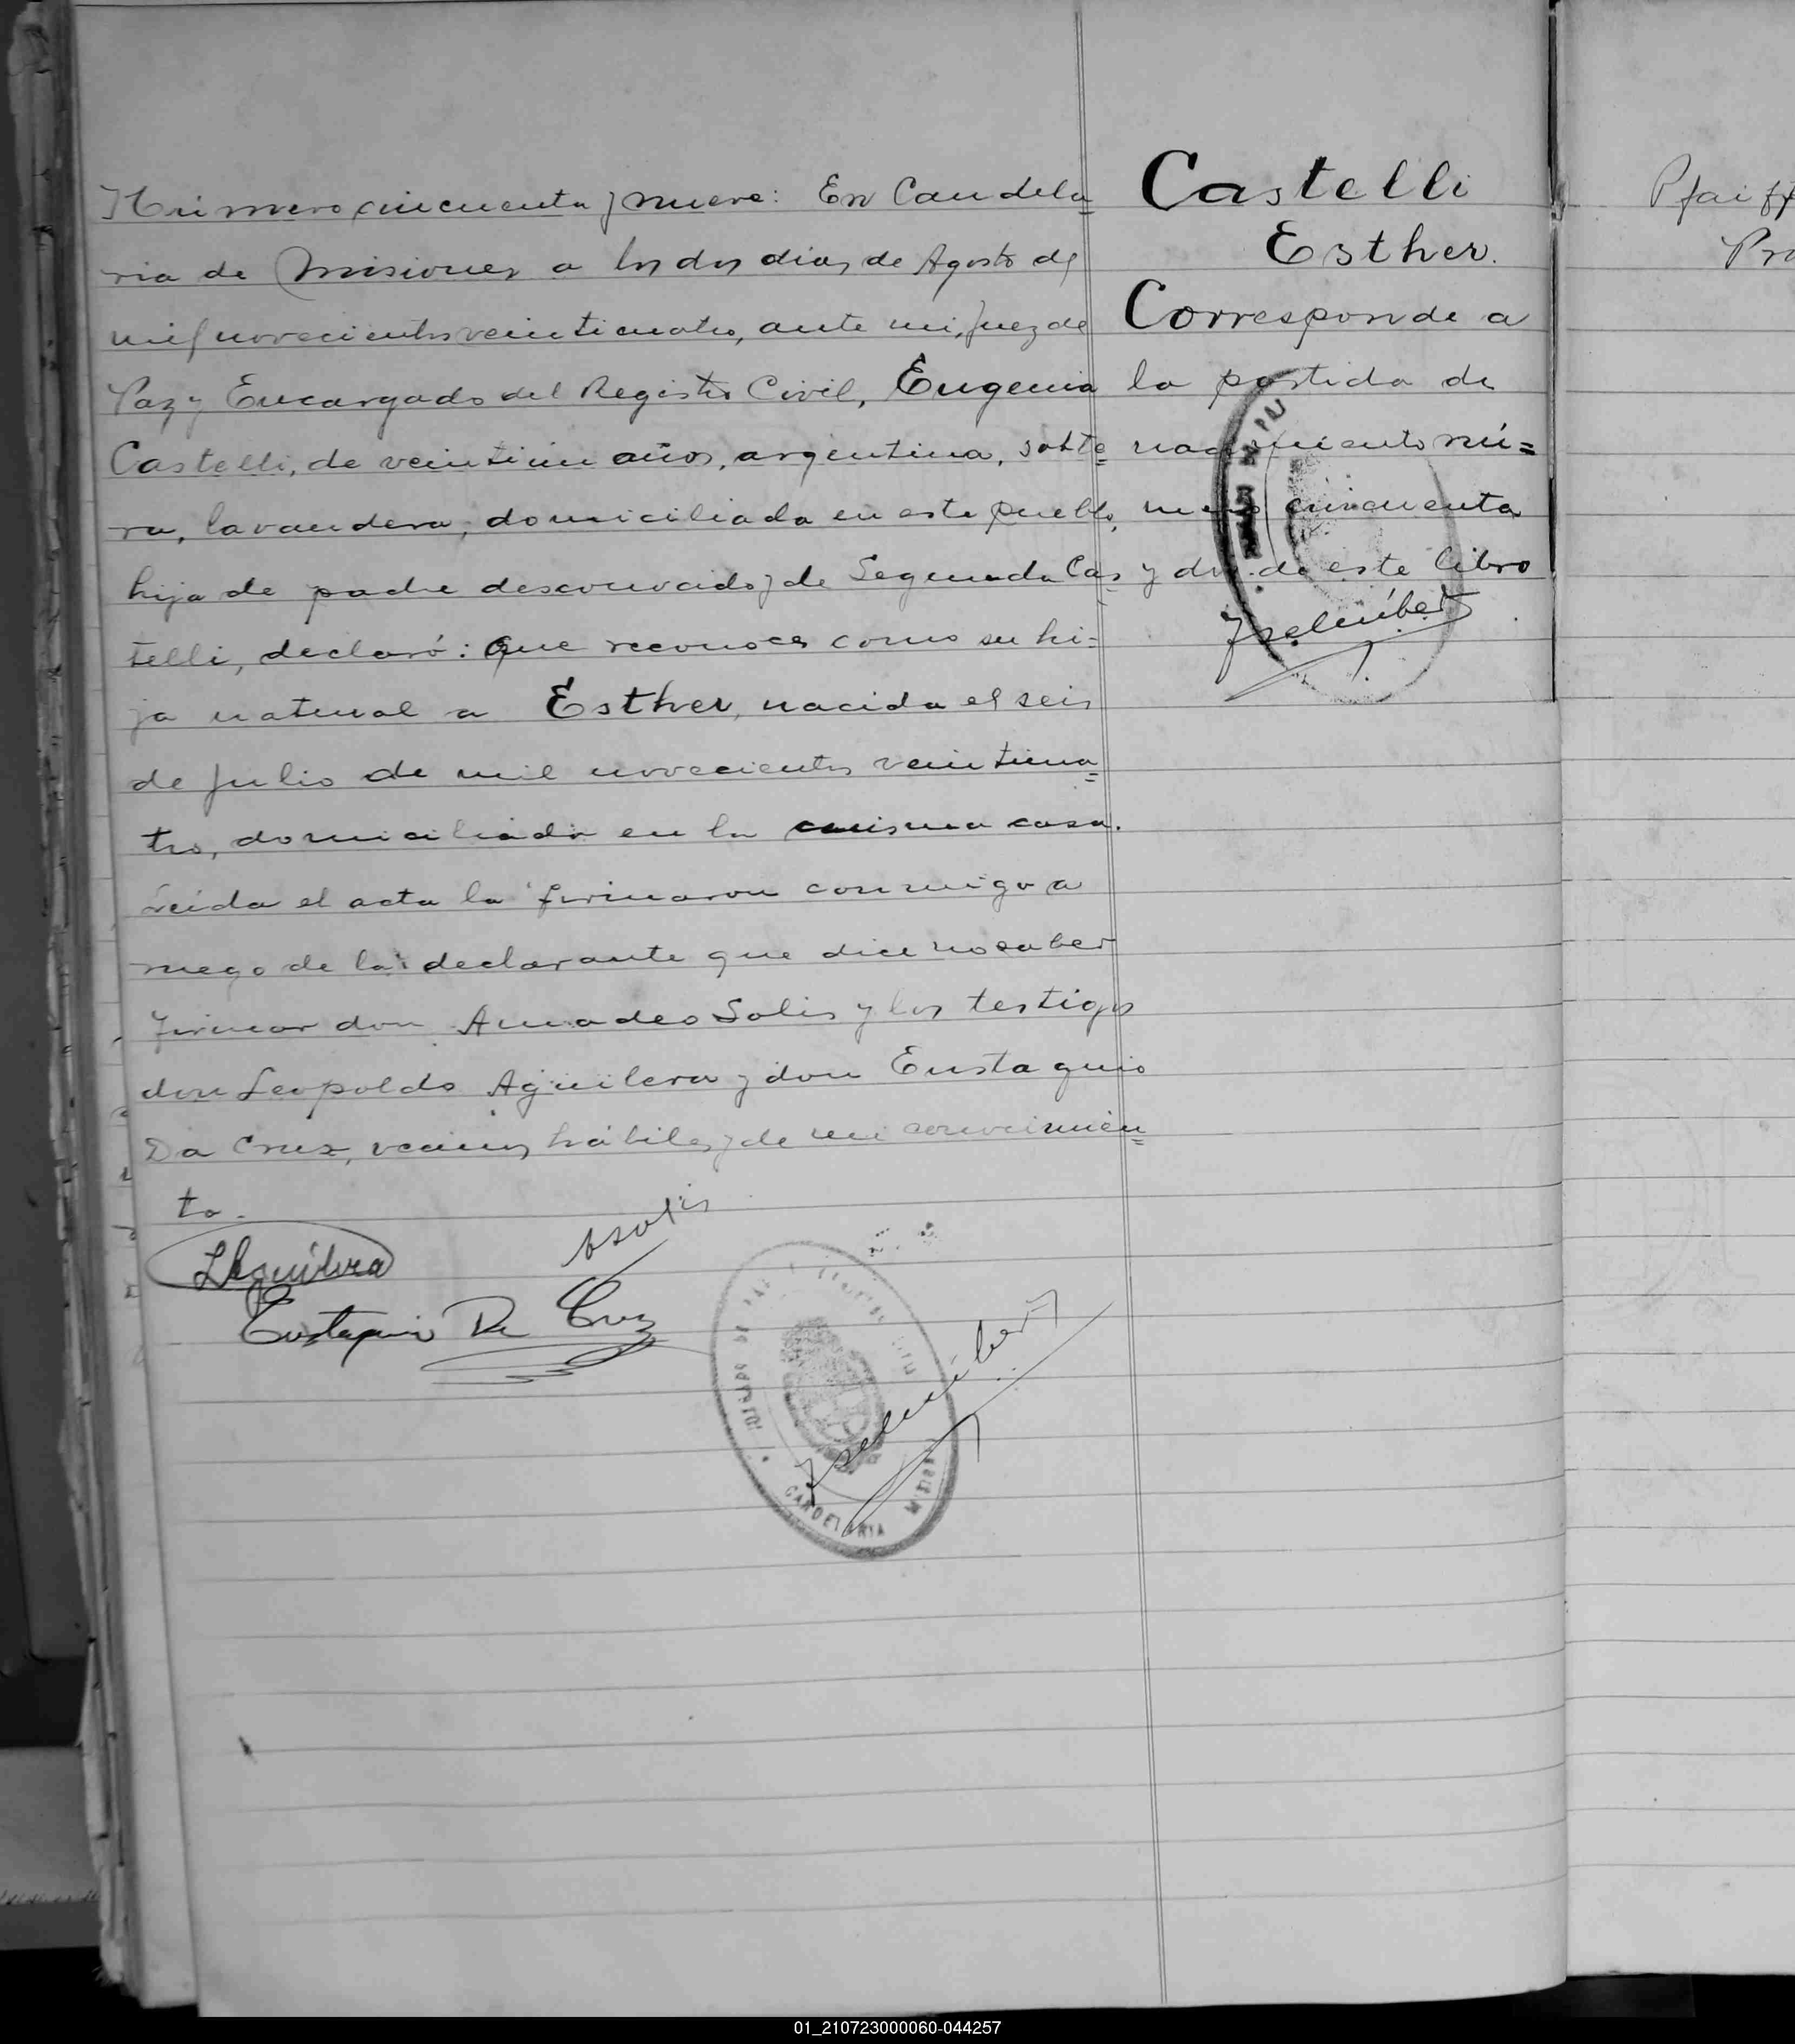 Número cincuenta y nueve: En Candela=
ria de Misiones a los dos dias de Agosto de
mil novecientos veinticuatro, ante mi, Juez de
Paz y Encargado del Registro Civil, Eugenia
Castelli, de veintiun años, argentina, solte=
ra, lavandera, domiciliada en este pueblo,
hija de padre desconocido y de Segunda Cas=
telli, declaró: Que reconoce como su hi=
ja natural a Esther, nacida el seis
de Julio de mil novecientos veinticua=
tro, domiciliada en la misma casa.
Leida el acta la firmaron conmigo a
ruego de la declarante que dice no saber
firmar don Amadeo Solis y los testigos
don Leopoldo Aguilera y don Eustaquio
Da Cruz, vecinos hábiles y de mi conocimien=
to.
Castelli
Esther.
Corresponde a
la partida de
nacimiento nú=
mero cincuenta
y dos de este libro
ASolis
LAguilera
Eustaquio Da Cruz
CANDELARIA
Pfaiff
Pr
01_210723000060-044257